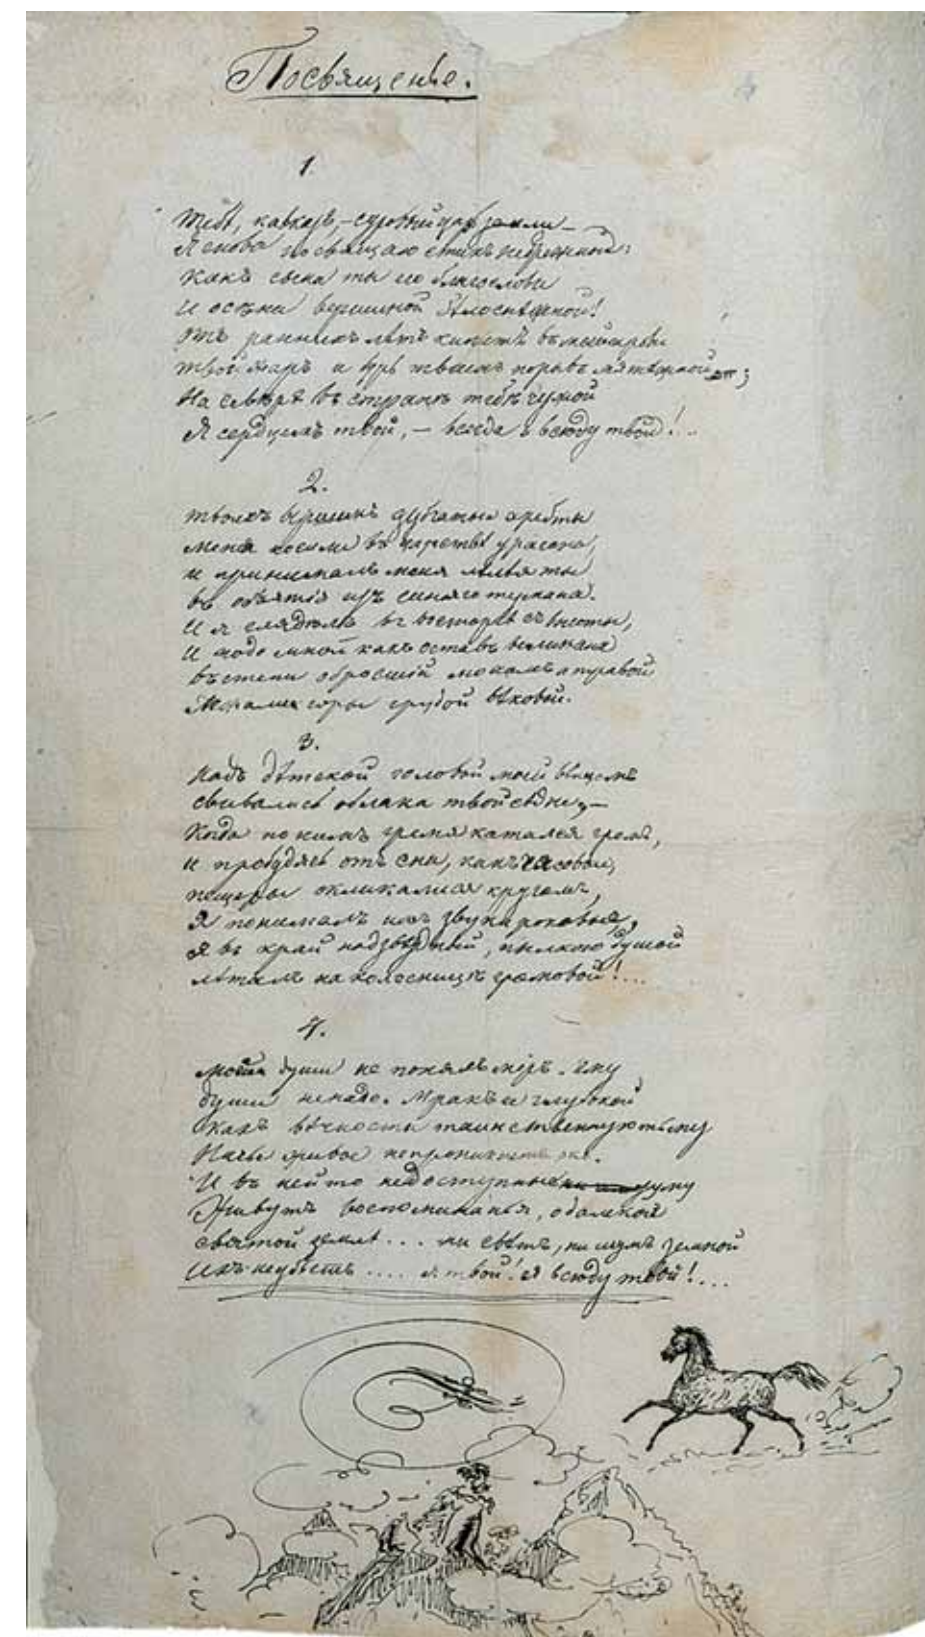 Посвященье.
1.
Тебѣ, кавказ,—суровый царь земли—
Я снова посвящаю стихъ небрежный:
Какъ сына ты его благослови
И осѣни вершиной бѣлоснѣжной!
Отъ раннихъ лѣтъ кипитъ въ моей крови
Твой жаръ и бурь твоихъ порывъ мятежной;
На сѣверѣ въ странѣ тебѣ чужой
Я сердцемъ твой,— всегда и всюду твой!..
2.
Твоихъ вершинъ зубчатые хребты
Меня носили въ царствѣ урагана,
и принималъ меня лѣлѣя ты
въ объятія изъ синяго тумана.
И я глядѣлъ въ восторгѣ съ высоты,
И подо мной какъ остовъ великана
въ степи обросшій мохомъ и травой
Лежали горы грудой вѣковой.
3.
Надъ дѣтской головой моей вѣнцомъ
свивались облака твои сѣдые,—
Когда по нимъ гремя катался громъ,
и пробудясь отъ сна, какъ часовые,
пещеры окликалися кругомъ,
Я понималъ ихъ звуки роковые,
Я въ край надзвѣздный, пылкою душой
леталъ на колесницѣ громовой!...
4.
Моей души не понялъ міръ. ему
души не надо. Мракъ ее глубокой
Какъ вѣчности таинственную тьму
Ничье живое не проникнетъ око.
И въ ней-то недоступныя уму
Живутъ воспоминанья, о далекой
святой землѣ... ни свѣтъ, ни шумъ земной
Ихъ не убьетъ.... я твой! я всюду твой!...